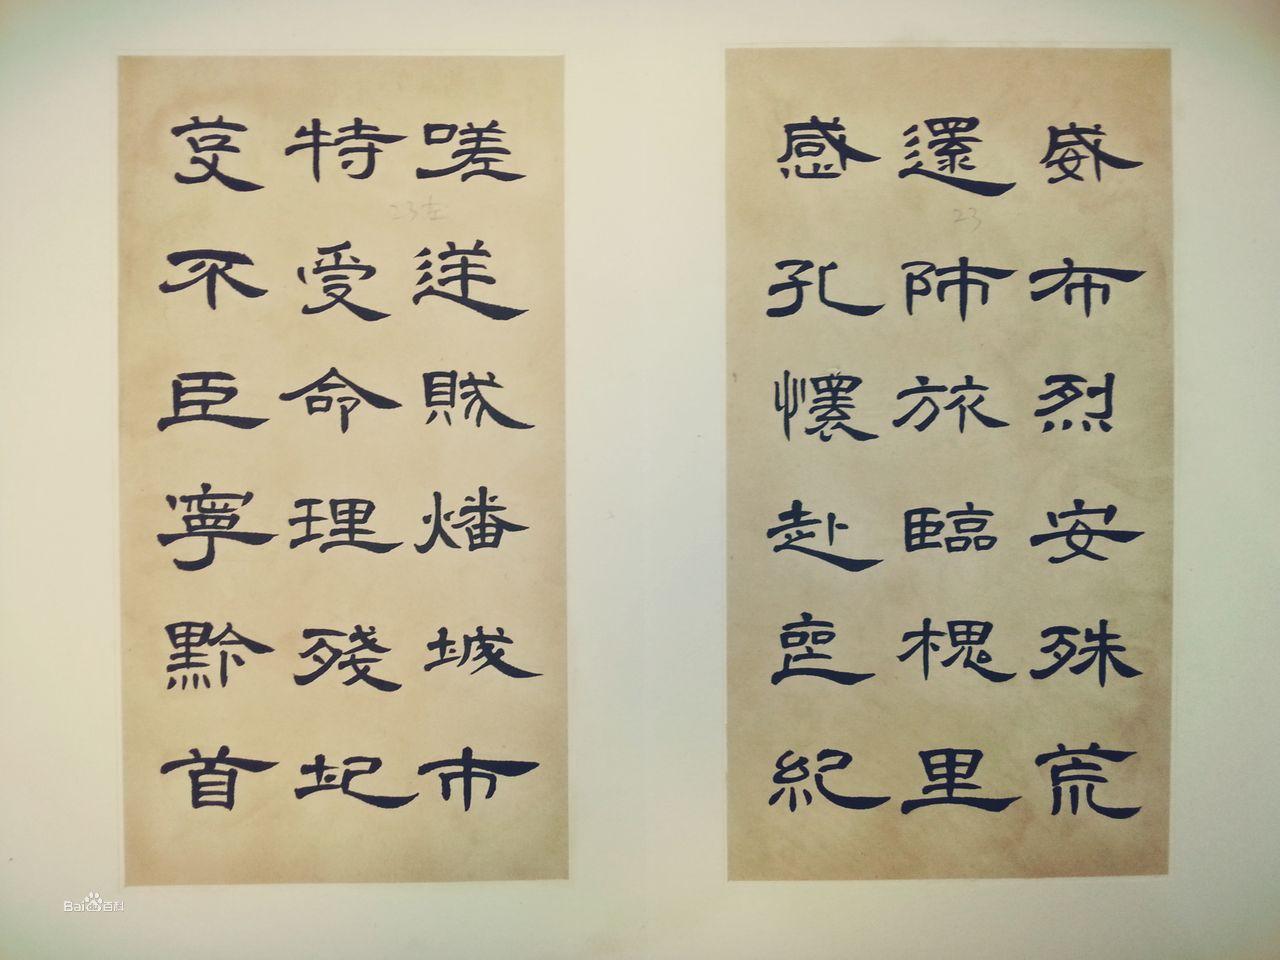 威布烈安殊荒
還師旅臨槐里
感孔懷赴喪紀
23
嗟逆賊燔城市
特受命理殘圮
芟不臣寧黔首
23左
Bai百科